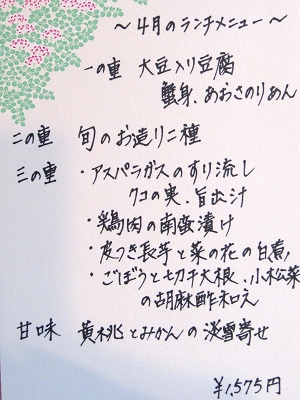 ～4月のランチメニュー～
一の重 大豆入り豆腐
蟹身、あおさのりあん
二の重 旬のお造り二種
三の重 ・アスパラガスのすり流し
クコの実、旨出汁
・鶏肉の南蛮漬け
・皮つき長芋と菜の花の白煮
・ごぼうと切干大根、小松菜
の胡麻酢和え
甘味 黄桃とみかんの淡雪寄せ
¥1,575円